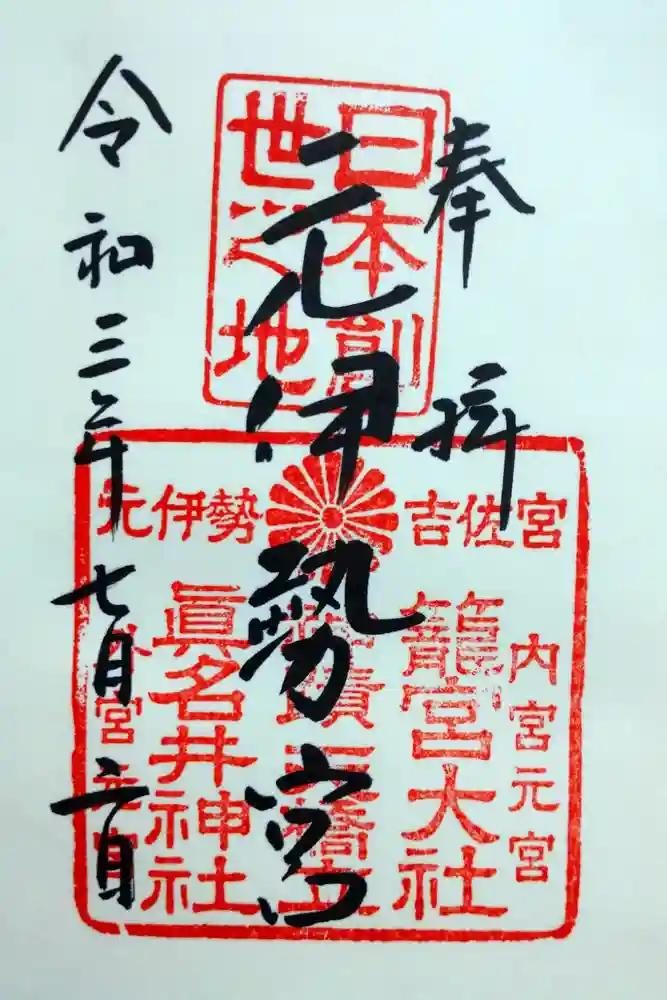 奉拝
日本創
世之地
元伊勢宮
令和三年七月二日
元伊勢 吉佐宮
内宮元宮
籠宮大社
眞名井神社